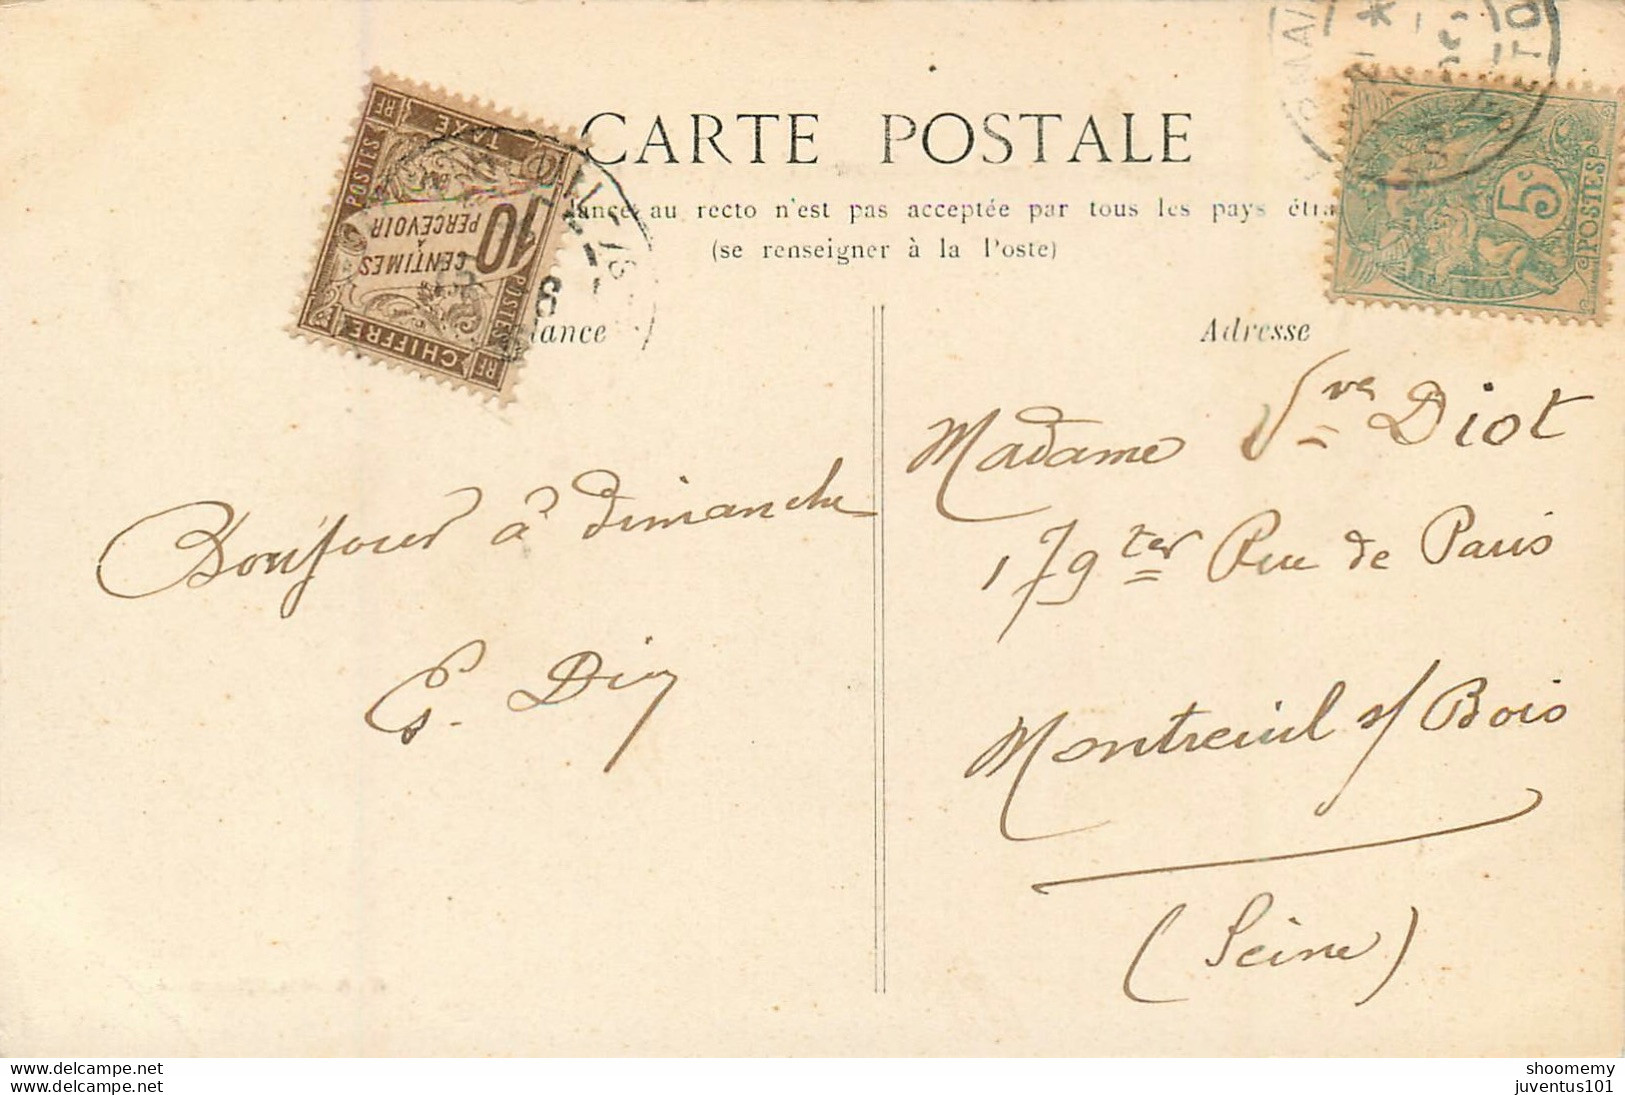 CARTE POSTALE
au recto n'est pas acceptée par tous les pays
(se renseigner à la Poste)
TAXE
RF
POSTES
10
CENTIMES
À
PERCEVOIR
POSTES
CHIFFRE
RF
5c
POSTES
Adresse
Bonjour à dimanche
Madame Vve Diot
179 ter Rue de Paris
Montreuil s/ Bois
(Seine)
delcampe.net
delcampe.net
shoomemy
juventus101